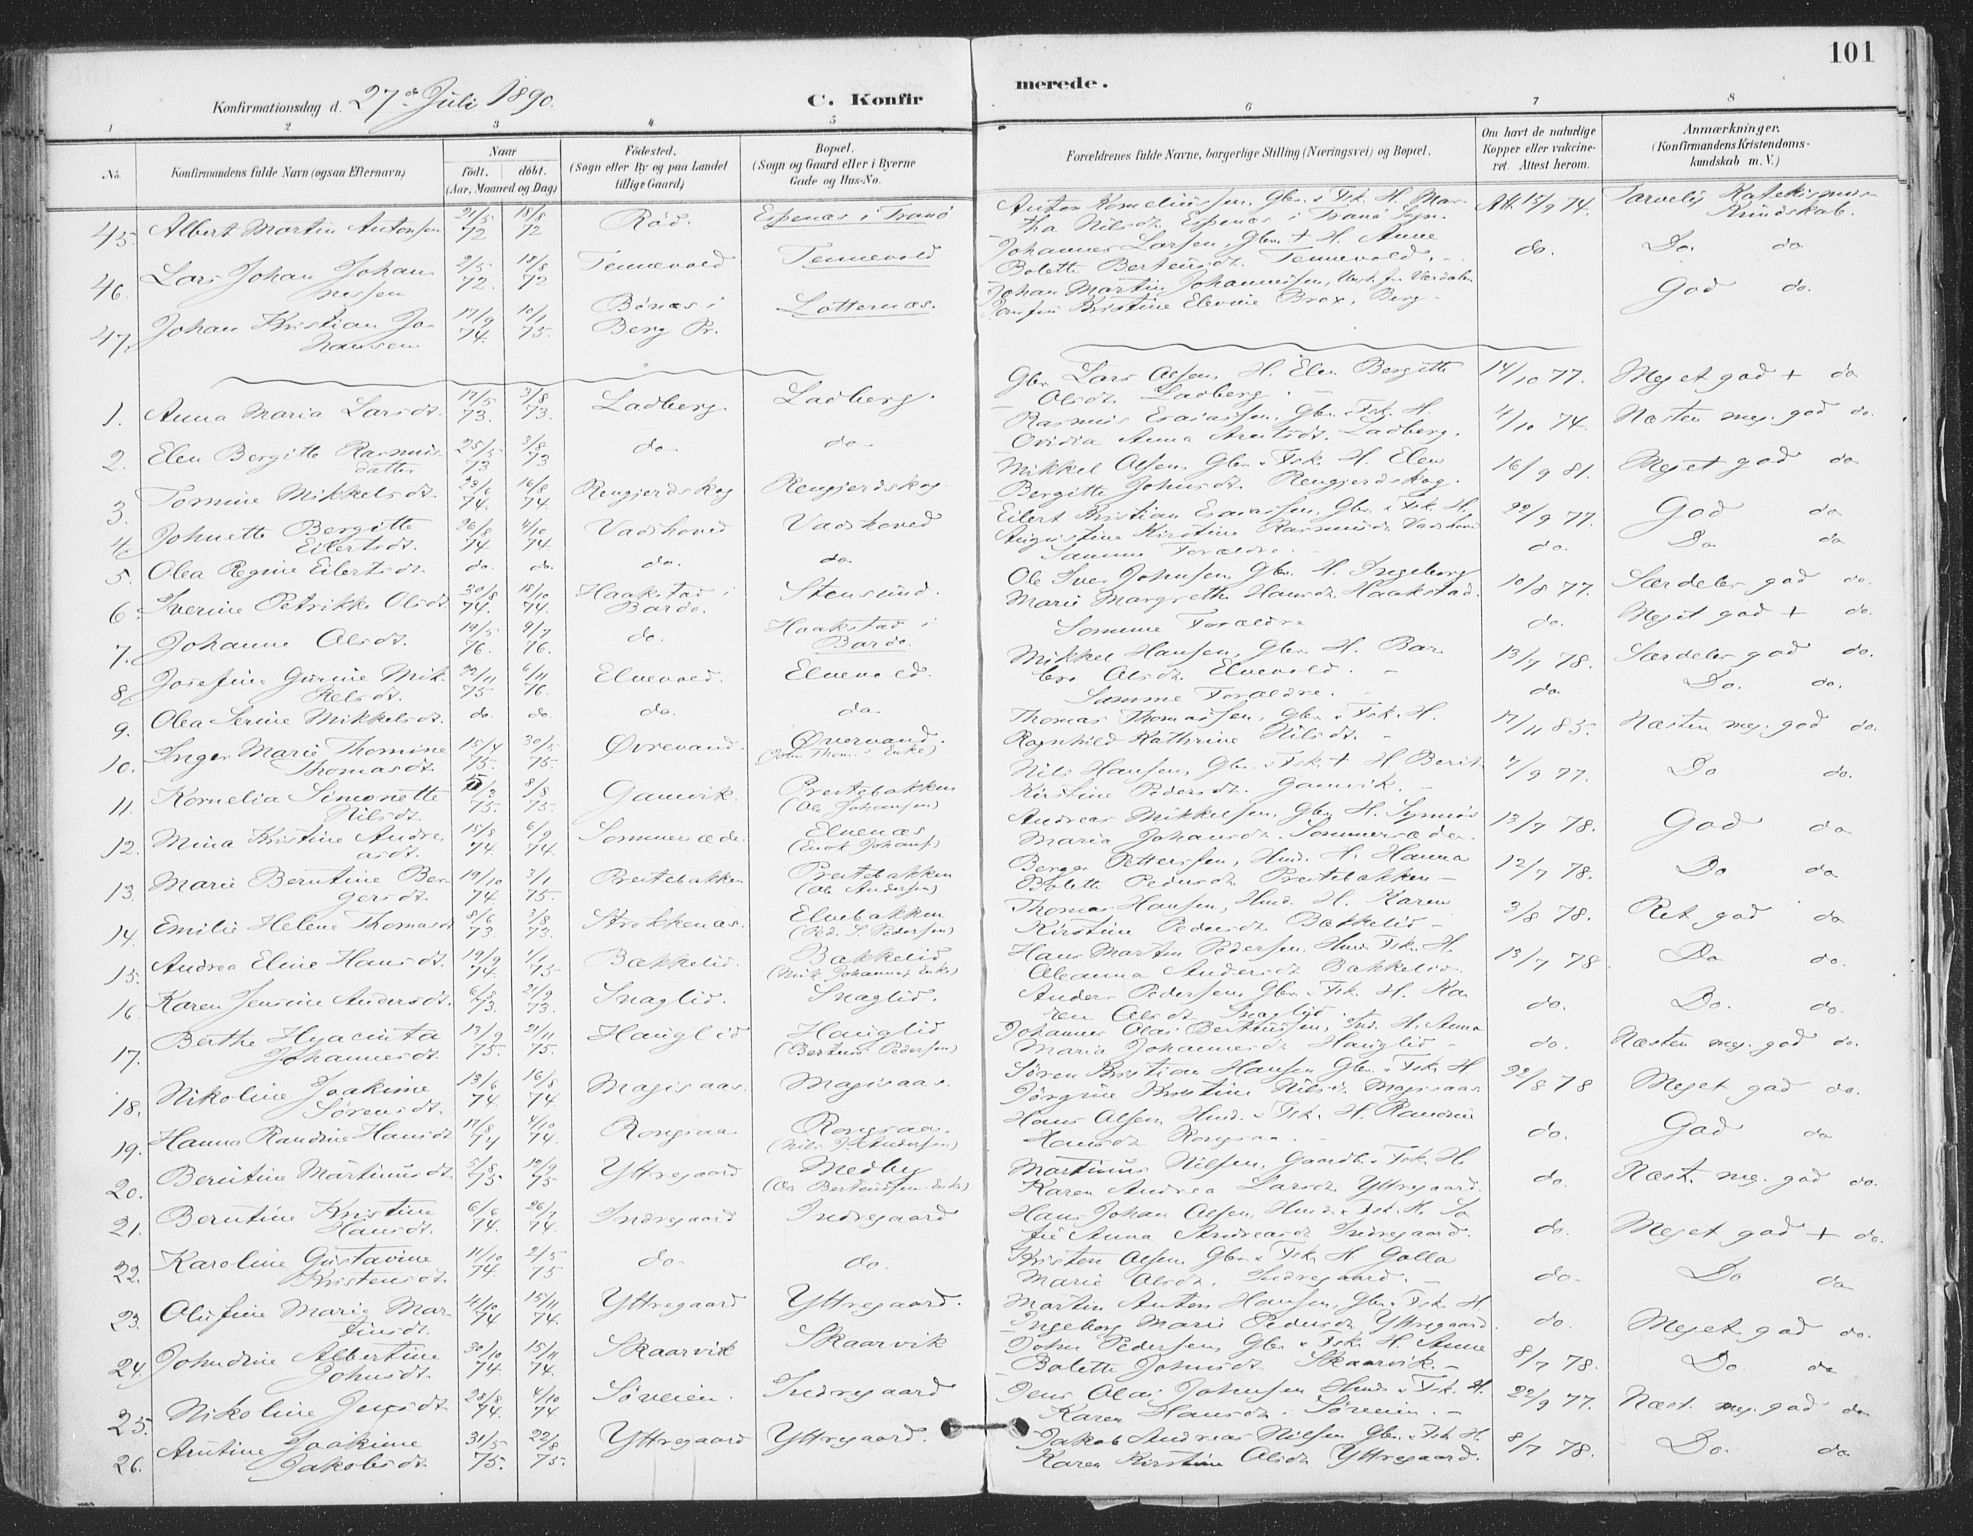 101
Konfirmationsdag d. 27de Juli 1890.
C. Konfirmerede.
1 2 3 4 5 6 7 8
No. Konfirmandens fulde Navn (ogsaa Efternavn) Naar Födt. döbt. (Aar, Maaned og Dag)
Födested. (Sogn eller By og paa Landet tillige Gaard)
Bopæl. (Sogn og Gaard eller i Byerne Gade og Hus-No.
Forældrenes fulde Navne, borgerlige Stilling (Næringsvei) og Bopæl.
Om havt de naturlige Kopper eller vakcineret. Attest herom.
Anmærkninger. (Konfirmandens Kristendomskundskab m. V.)
45. Albert Martin Antonsen 21/5 72 18/8 72 Röd. Espenæs i Tranö Anton Korneliussen, Gbr. & Fsk. H. Martha Nilsdt. Espenæs i Tranö Sgn. Att. 15/9 74. Tarvelig Katekismus Kundskab.
46. Lars Johan Johannessen 2/5 72. 18/8 72 Tennevold Tennevold Johannes Larsen, Gbr. + H. Anne Bolette Berteusdt. Tennevold. do. Do. do
47. Johan Kristian Johansen 17/9 74. 10/1 75. Bönæs i Berg Pr. Lotternæs. Johan Martin Johannesen, Kristine Elevine Brox, Berg God do.
1. Anna Maria Larsdt. 17/5 73. 3/8 73. Ladberg. Ladberg. Gbr. Lars Olsen, H. Elen Bergitte Olsdt. Ladberg. 14/10 77. Meget god + do
2. Elen Bergitte Rasmusdatter 25/5 73 3/8 73 do. do. Rasmus Esaiassen, Gbr. & Fsk. H. Ovidia Anna Arntsdt. Ladberg. 4/10 74. Næsten meg. god do.
3. Tomine Mikkelsdt. 23/6 74. 16/8 74. Rengjerdskog Rengjerdskog Mikkel Olsen, Gbr. & Fsk. H. Elen Bergitte Johnsdt. Rengjerdskog. 16/9 81. Meget god do
4. Johnette Bergitte Eilertsdt. 26/8 74. 4/10 74. Vadshoved Vadshoved Eilert Kristian Esaiassen, Gbr. & Fsk. H. Augustine Kirstine Rasmusdt. 22/9 77. God do
5. Olea Regine Eilertsdt. do. do. do. do. Samme Forældre. do. Do do
6. Iverine Petrikke Olsdt. 30/8 74. 18/10 74. Haakstad i Bardo. Stensund. Ole Iver Johnsen, Gbr. H. Ingeborg Marie Margrethe Hansdt. Haakstad. 10/8 77. Særdeles god do.
7. Johanne Olsdt. 19/5 76. 9/7 76. do. Haakstad i Bardo Samme Forældre do. Meget god + do.
8. Josefine Gurine Mikkelsdt. 22/11 75 6/11 76. Elvevold. Elvevold. Mikkel Hansen, Gbr. H. Olsdt. Elvevold. 13/7 78. Særdeles god do.
9. Olea Serine Mikkelsdt. do. do. do. do. Samme Forældre. do. Do. do.
10. Inger Marie Thomine Thomasdt. 15/4 75. 30/5 75. Övrevand. Övervand. Thomas Thomassen, Gbr. & Fsk. H. Ragnhild Kathrine Nilsdt. 17/11 85. Næsten meg. god do.
11. Kornelia Simonette Nilsdt. 5/3 75. 8/8 75. Gamvik. Prestebakken (Ole Johansen) Nils Hansen, Gbr. & Fsk. + H. Berit Kirstine Pedersdt. Gamvik. 7/9 77. Do do.
12. Mina Kristine Andreasdt. 15/8 74. 6/9 74. Sommersæde. Elvenæs (Enok Johans.) Andreas Mikkelsen, Gbr. H. Maria Johansdt. Sommersæde. 13/7 78. God do
13. Marie Berntine Bergersdt. 19/10 74. 3/1 75. Prestebakken Prestebakken (Ole Andersen) Berger Petterssen, Hmd. H. Hanna Bolette Pedersdt. Prestebakken 12/7 78. Do do
14. Emilie Helene Thomasdt 8/6 73. 3/8 73. Strokkenæs. Elvebakken (Ped. S. Pedersen) Thomas Hansen, Hmd. H. Karen Kirstine Pedersdt. Bækkelid 3/8 78. Ret god do
15. Andrea Eline Hansdt. 19/9 74. 1/1 75. Bækkelid. Bækkelid (Mik. Johannes. Enke) Hans Martin Pedersen, Hmd. Fsk. H. Oleanna Andersdt. Bækkelid. 13/7 78 Do do.
16. Karen Jensine Andersdt. 6/8 73. 21/9 73. Snaglid. Snaglid. Anders Pedersen, Gbr. & Fsk. H. Karen Olsdt. Snaglid. do. Do. do.
17. Berthe Hyacinta Johannesdt. 13/9 75. 21/11 75. Hauglid Hauglid (Berteus Pedersen) Johannes Olai Berteussen, Ind. H. Anna Maria Johannesdt. Hauglid do. Næsten meg. god do.
18. Nikoline Joakime Sörensdt. 13/6 74. 16/8 74. Magisaas. Magisaas. Sören Kristian Hansen Gbr. & Fsk. H. Jörgine Kristine Nilsdt. Magisaas 22/8 78 Meget god do.
19. Hanna Randine Hansdt 11/8 74 4/10 74. Rongsaa. Rongsaa. Hans Olsen, Hmd. & Fsk. H. Randine Hansdt. Rongsaa. do. God do
20. Berntine Martinusdt. 5/8 75. 12/9 75 Yttregaard Medby (Ole Berteussens Enke) Martinus Nilsen, Gaardb. & Fsk. H. Karen Andrea Larsdt. Yttregaard. do. Næst. meg. god do.
21. Berntine Kristine Hansdt. 6/6 74. 26/7 74. Indregaard Indregaard Hans Johan Olsen, Hmd. & Fsk. H. Sofie Anna Andreasdt. Indregaard. do. Meget god + do.
22. Karoline Gustavine Kristensdt. 11/10 74. 2/5 75 do. do. Kristen Olsen Gbr. & Fsk. H. Golla Marie Olsdt. Indregaard. do. Do do
23. Olufine Marie Martinsdt. 4/10 74 15/11 74. Yttregaard Yttregaard. Martin Anton Hansen, Gbr. & Fsk. H. Ingeborg Marie Pedersdt. Yttregaard. do. Meget god do.
24. Johndine Albertine Johnsdt. 30/10 74. 15/11 74. Skaarvik Skaarvik John Pedersen, Gbr. & Fsk. H. Anne Bolette Johnsdt. Skaarvik. 8/7 78. Do. do
25. Nikoline Jensdt 28/8 74. 4/10 74. Söreien. Indregaard Jens Olai Johnsen Hmd. & Fsk. H. Karen Hansdt. Söreien. 22/9 77. Næst. meg. god do
26. Arntine Joakime Jakobsdt. 31/5 75. 22/8 75. Yttregaard Yttregaard. Jakob Andreas Nilsen Gbr. & Fsk. H. Karen Kirstine Olsdt. Yttregaard. 8/7 78. Do. do